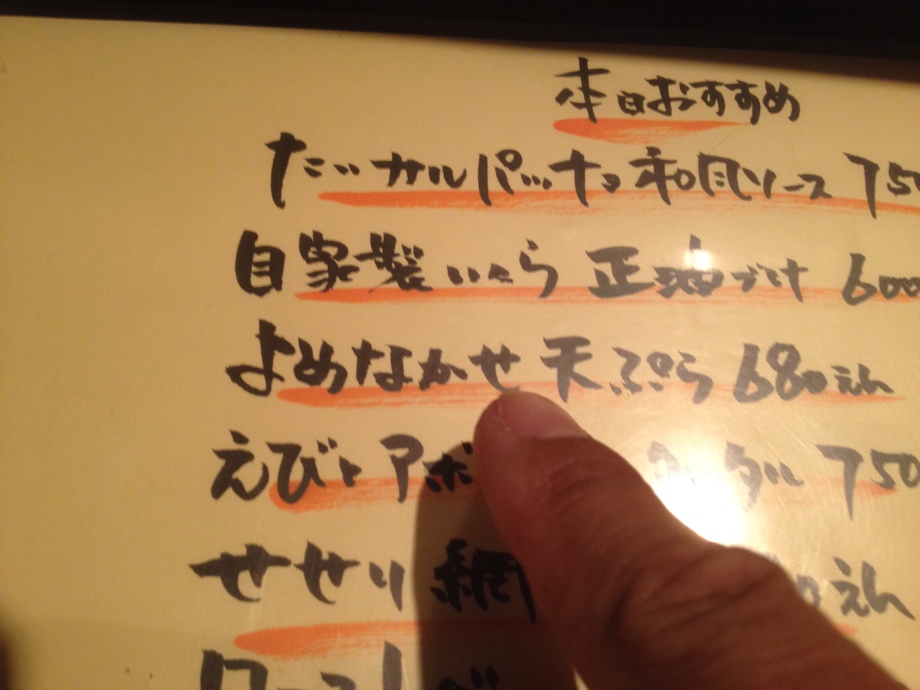 本日おすすめ
たこカルパッチョ 和風ソース 750
自家製いくら 正油づけ 600
よめなかせ 天ぷら 680えん
えびとアボ タル 750
せせり 網 0えん